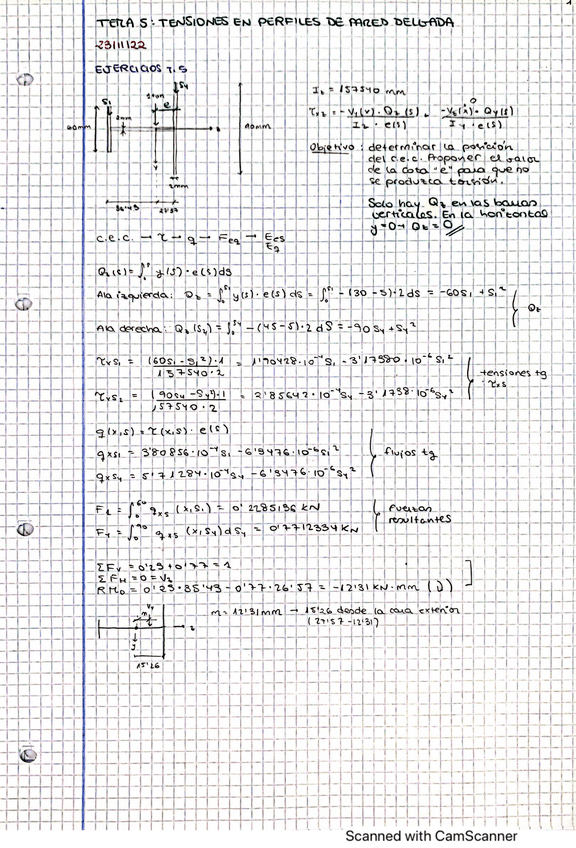 TEMA 5: TENSIONES EN PERFILES DE PARED DELGADA
23/11/22
EJERCICIOS T.5
S1
S4
1kN
e
60mm
2mm
90mm
2mm
36'43
27'57
Iz = 157540 mm
τxs = -Vy(x) · Qz(s) / Iz · e(s) + -Vz(x) · Qy(s) / Iy · e(s)
0
Objetivo: determinar la posición
del c.e.c. Proponer el valor
de la cota "e" para que no
se produzca torsión.
Solo hay Qz en las barras
verticales. En la horizontal
y=0 → Qz = 0
c.e.c. → τ → q → Feq →
Qz(s) = ∫ y(s) · e(s) ds
Ala izquierda: Qz = ∫ y(s) · e(s) ds = ∫ -(30-s)·2 ds = -60s1 + s1²
Qz
Ala derecha: Qz(s4) = ∫ -(45-s)·2 ds = -90s4 + s4²
τxs1 = (60s1 - s1²)·1 / 157540·2 = 1'90428·10⁻⁴ s1 - 3'17380·10⁻⁶ s1²
tensiones tg
τxs
τxs2 = (90s4 - s4²)·1 / 157540·2 = 2'85642·10⁻⁴ s4 - 3'1738·10⁻⁶ s4²
q(x,s) = τ(x,s) · e(s)
qxs1 = 3'80856·10⁻⁴ s1 - 6'3476·10⁻⁶ s1²
flujos tg
qxs4 = 5'71284·10⁻⁴ s4 - 6'3476·10⁻⁶ s4²
F1 = ∫₀⁶⁰ qxs (x,s1) = 0'2285136 kN
fuerzas
resultantes
F4 = ∫₀⁹⁰ qxs (x,s4) ds4 = 0'7712334 kN
ΣFv = 0'23 + 0'77 = 1
ΣFH = 0 = Vz
RMo = 0'23·35'43 - 0'77·26'57 = -12'31 kN·mm
m = 12'31mm → 15'26 desde la cara exterior
(27'57 - 12'31)
m
Vy
y
z
15'26
Scanned with CamScanner